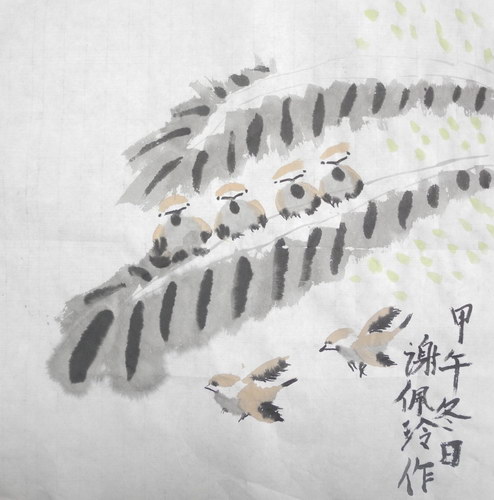 甲午冬日
谢佩玲作